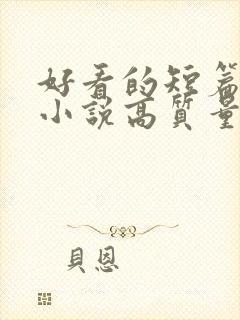 好看的短篇
小說高質量
貝恩